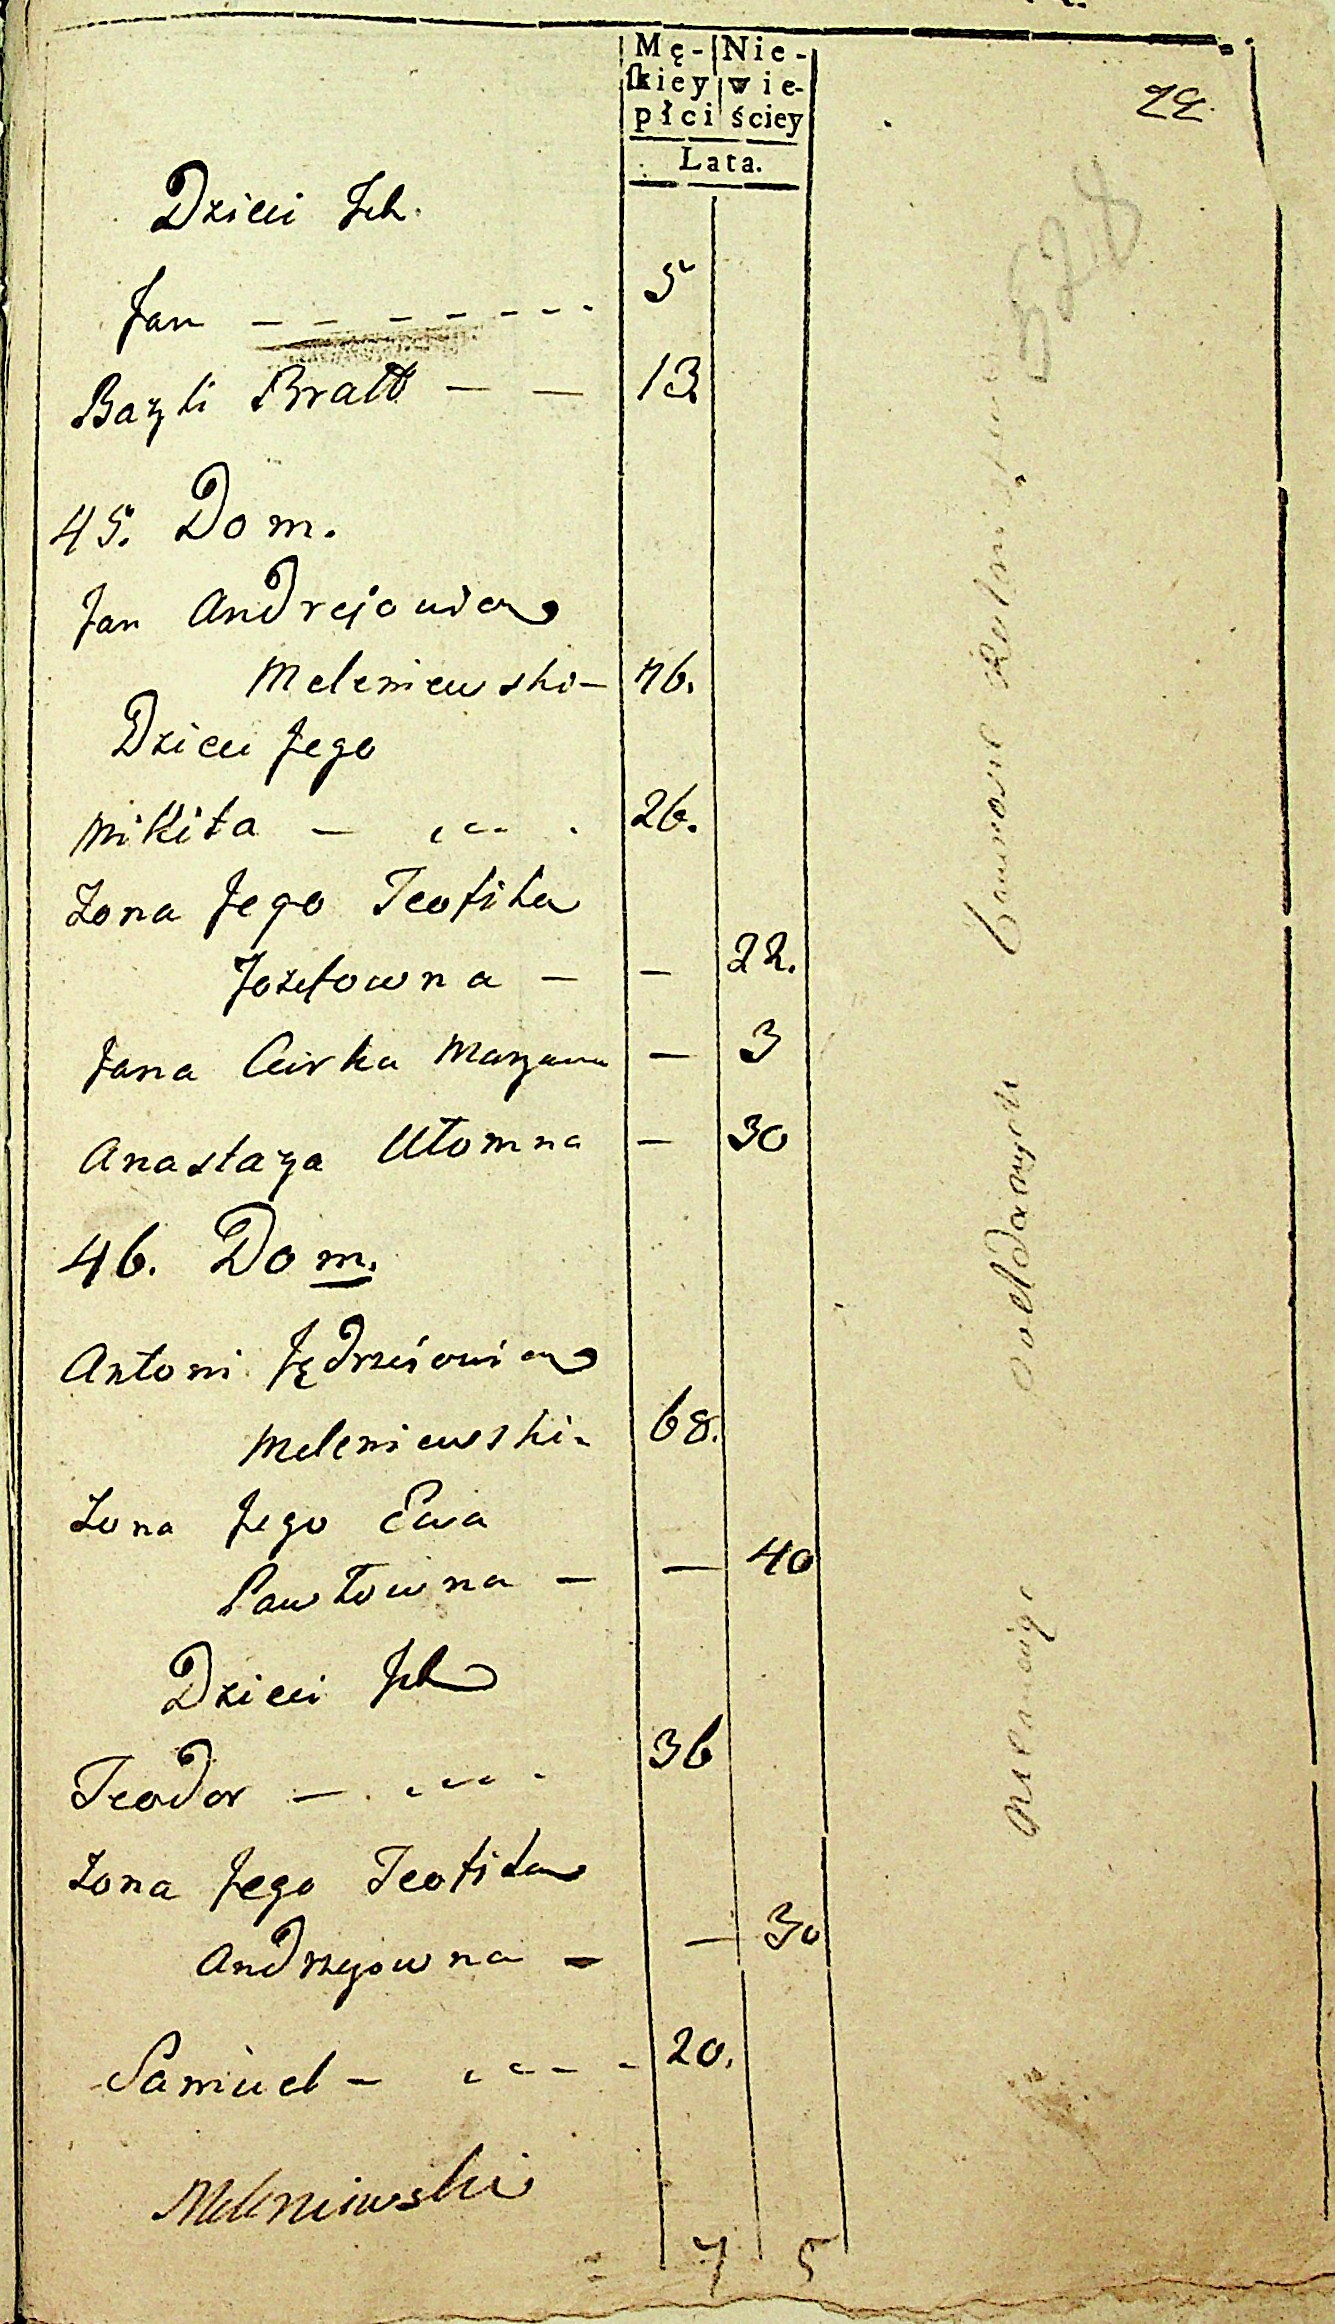 Mę- Nie-
skiey wie-
płci ściey
Lata.
Dzieci Jch.
Jan — — — — — — — 5
Bazyli Bratt — — 13.
45. Dom.
Jan Andrejowicz
Meleniewski — 46.
Dzieci Jego
Mikita — 26.
Zona Jego Teofila
Jozefowna — — 22.
Jana Curka Maryana — 3
Anastazya Ułomna — 30
46. Dom.
Antoni Jędrzeiowicz
Meleniewski - 68.
Zona Jego Ewa
Pawłowna — — 40
Dzieci Jch
Teodor — 36
Zona Jego Teofila
Andrzejowna — — 30
Samuel — 20.
Meleniewski
7 5
528